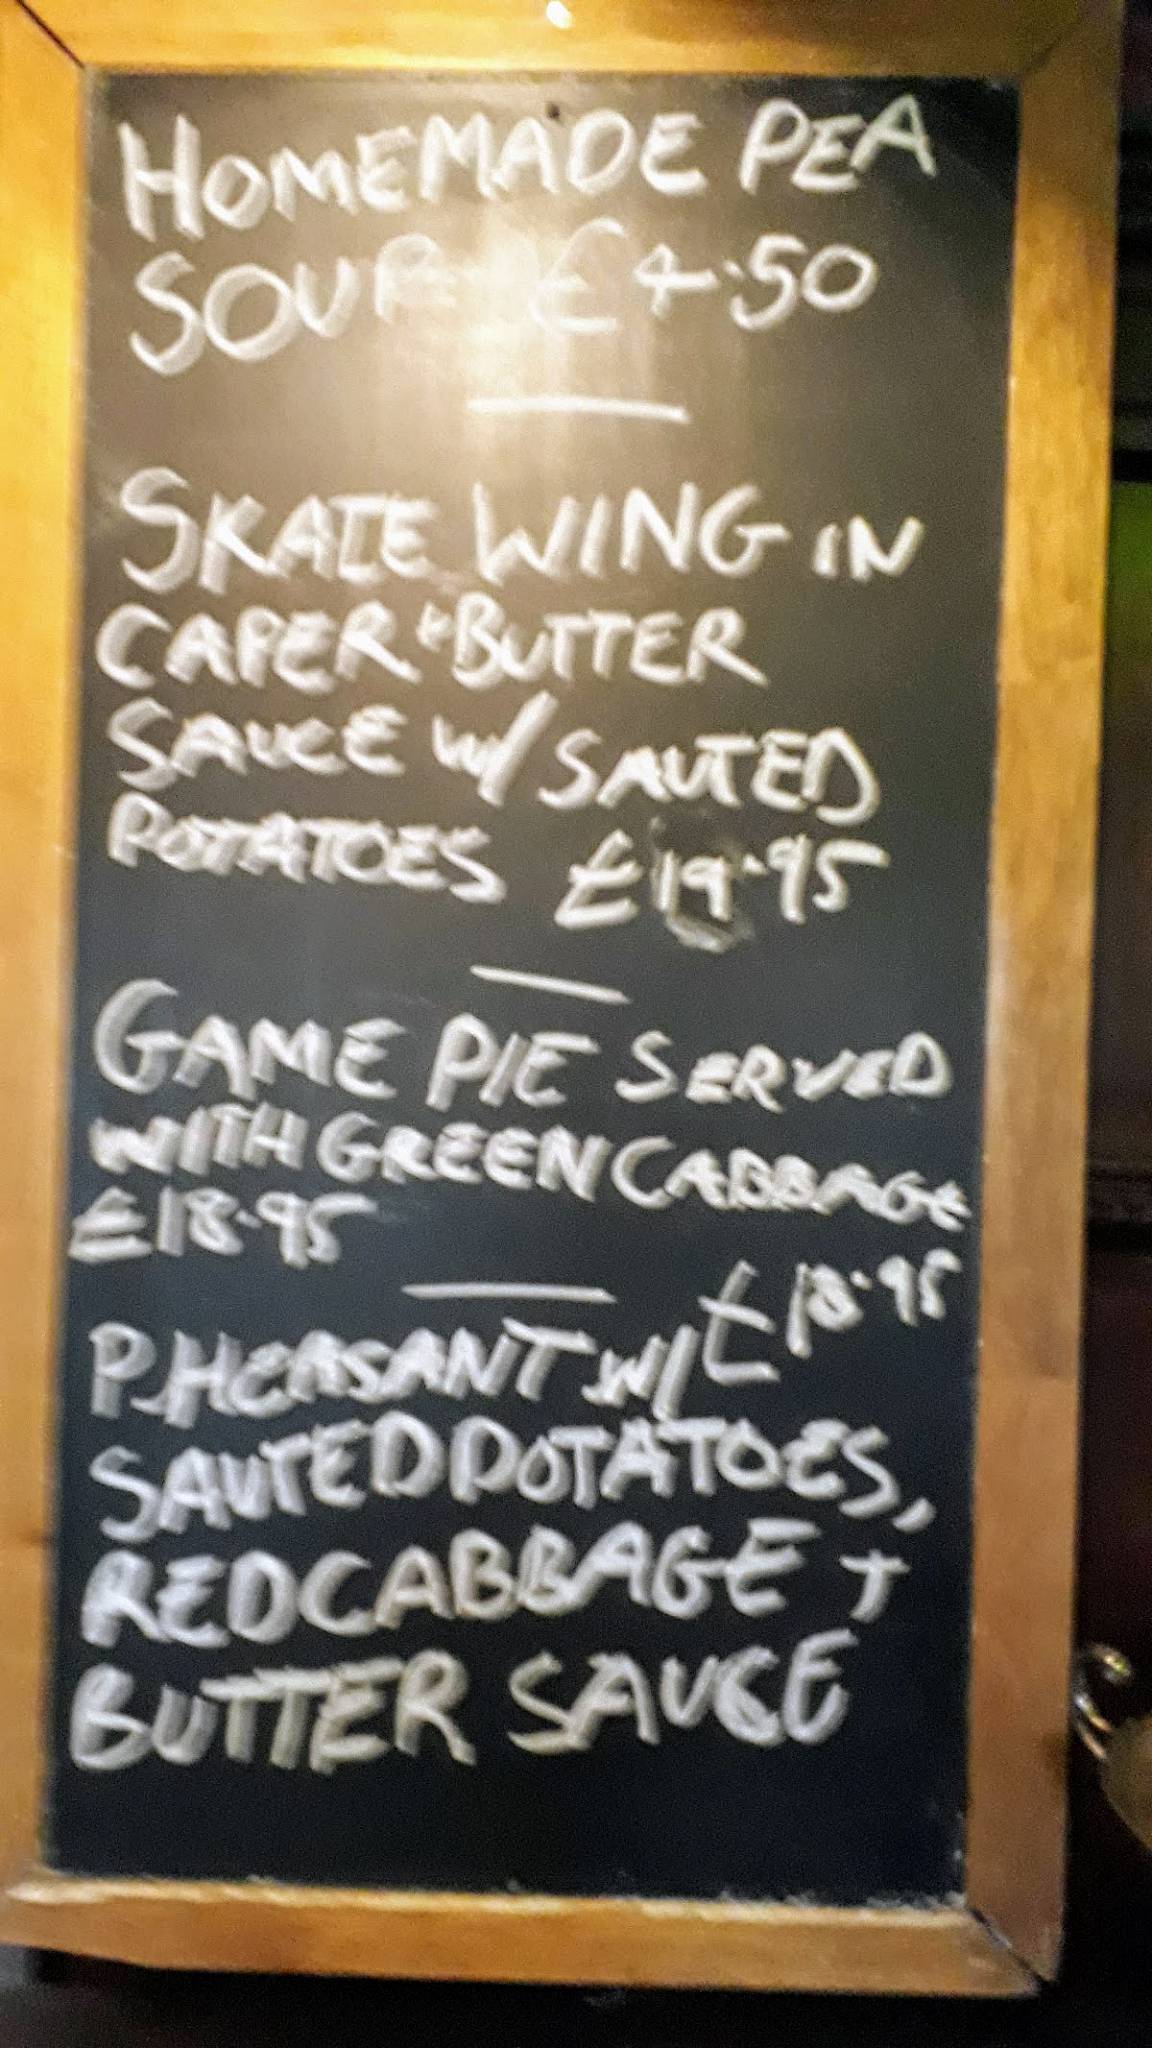 HOMEMADE PEA
SOUP £4.50
SKATE WING IN
CAPER + BUTTER
SAUCE W/ SAUTED
POTATOES £19.95
GAME PIE SERVED
WITH GREEN CABBAGE
£18.95
£18.95
PHEASANT W/
SAUTED POTATOES,
RED CABBAGE +
BUTTER SAUCE